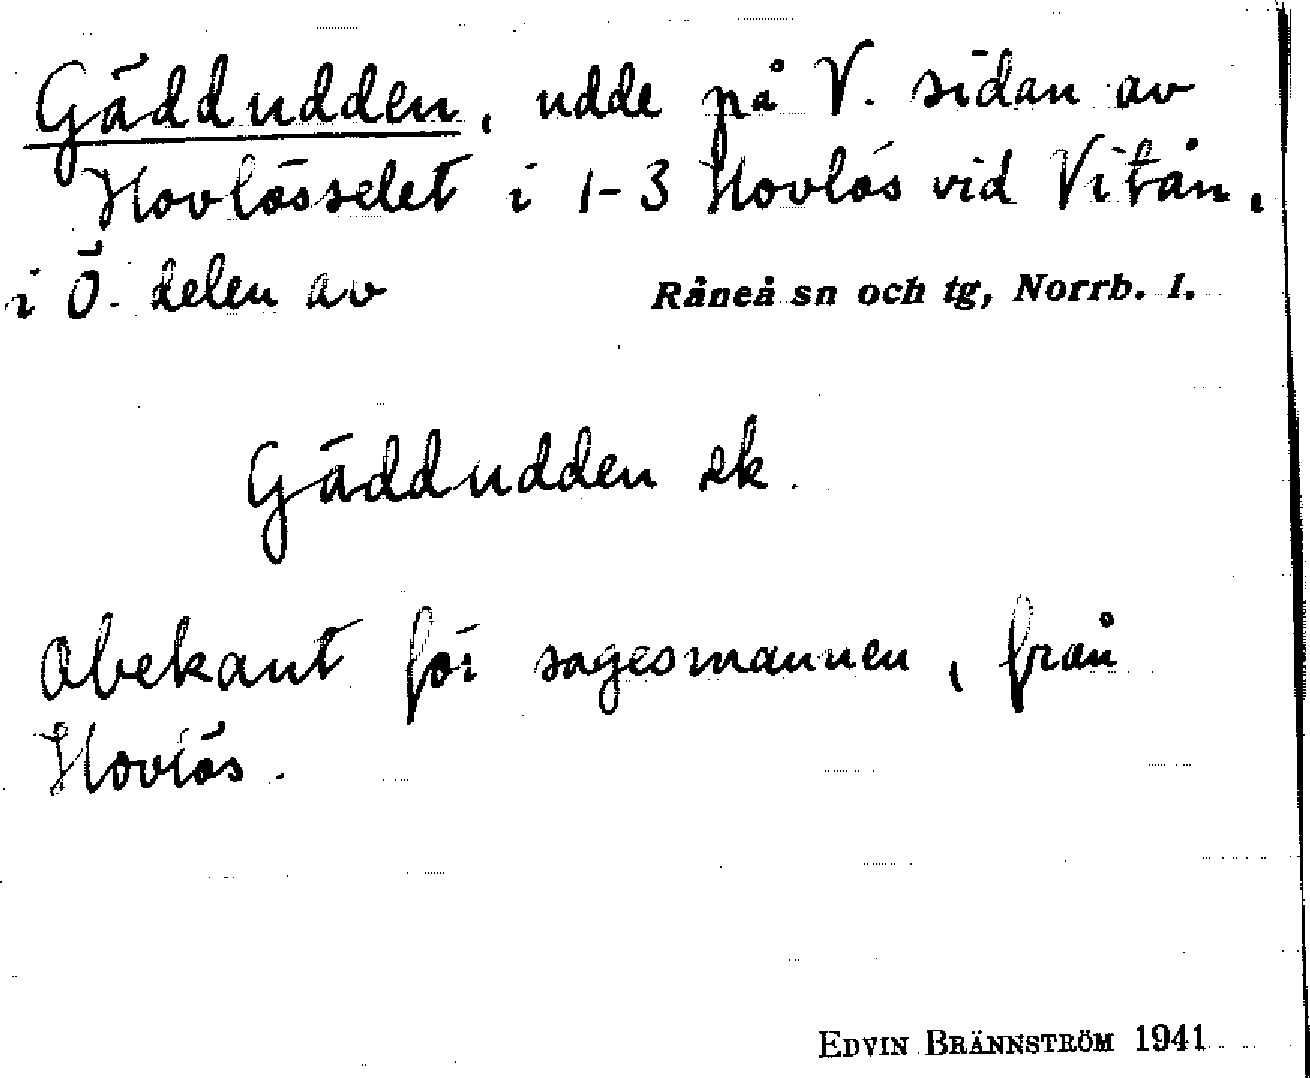 Gäddudden, udde på V. sidan av
Hovlösselet i 1-3 Hovlös vid Vitån,
i Ö. delen av Råneå sn och tg, Norrb. l.
Gäddudden ek.
Obekant för sagesmannen, från
Hovlös.
EDVIN BRÄNNSTRÖM 1941